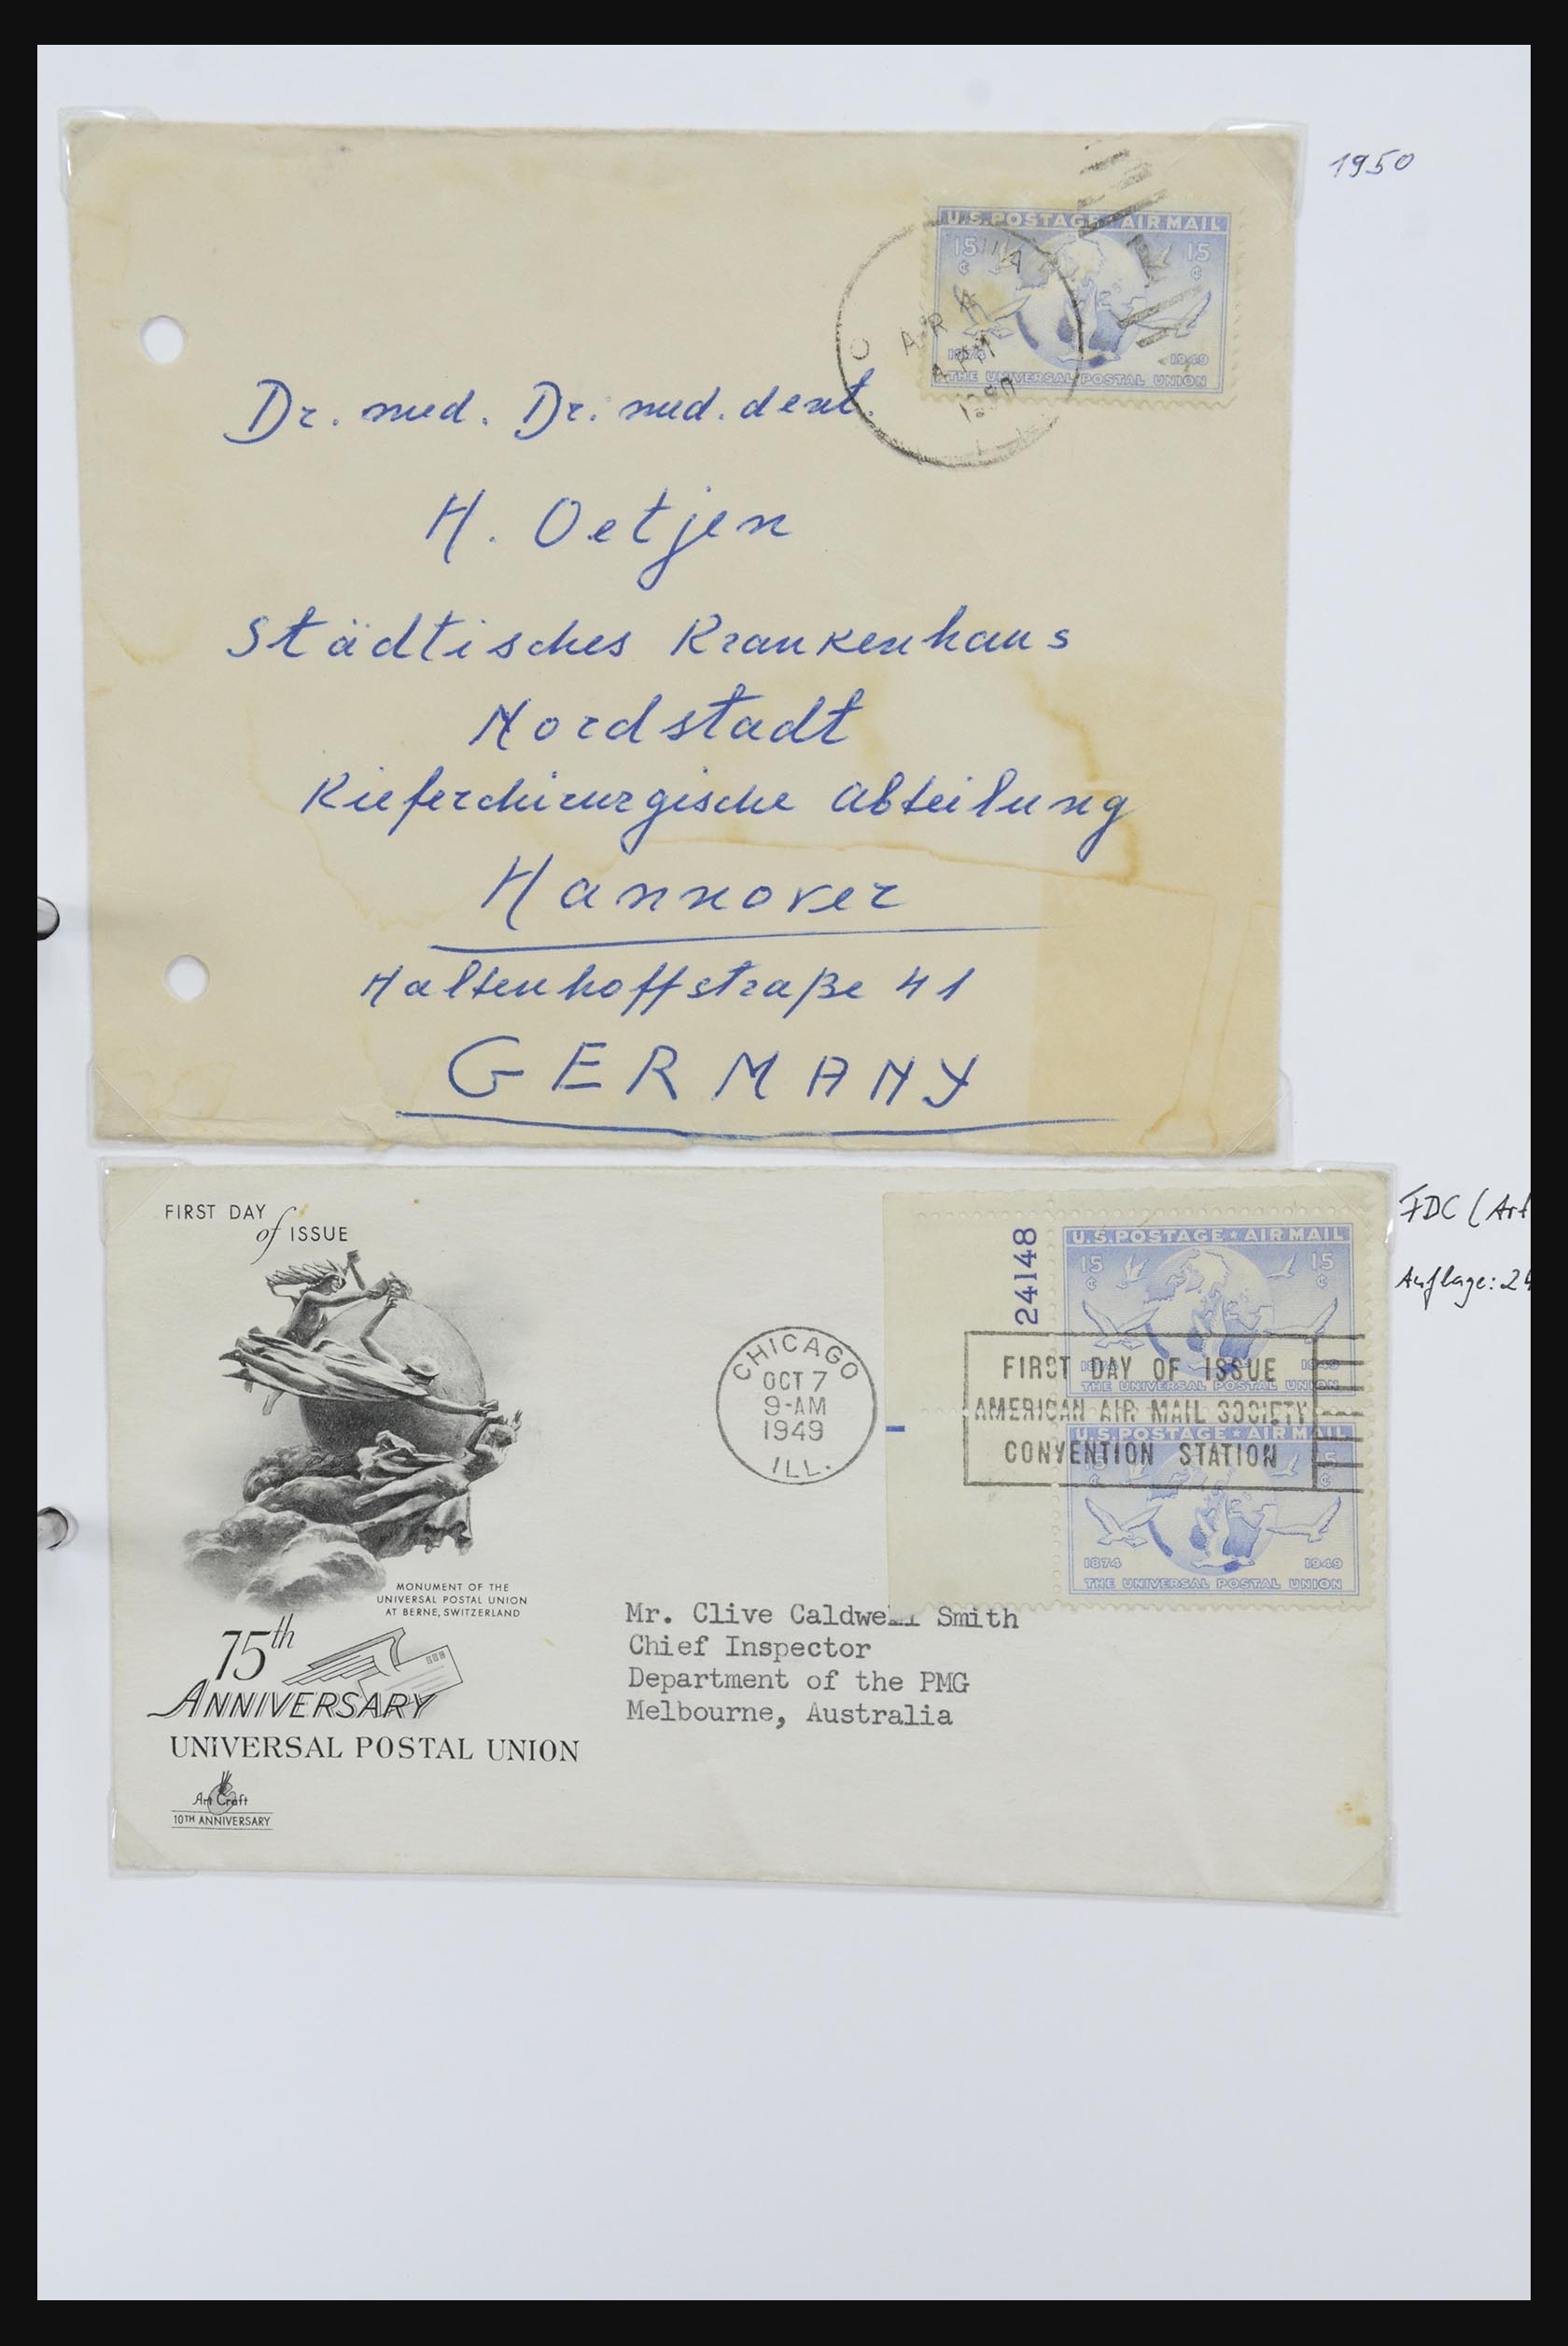 1950
U.S. POSTAGE ★ AIR MAIL
15 ¢ 15 ¢
1949
THE UNIVERSAL POSTAL UNION
Dr. med. Dr. med. dent.
H. Oetjen
Städtisches Krankenhaus
Nordstadt
Kieferchirurgische Abteilung
Hannover
Haltenhoffstraße 41
GERMANY
FIRST DAY
of ISSUE
MONUMENT OF THE
UNIVERSAL POSTAL UNION
AT BERNE, SWITZERLAND
75th
ANNIVERSARY
UNIVERSAL POSTAL UNION
Art Craft
10TH ANNIVERSARY
CHICAGO
OCT 7
9-AM
1949
ILL.
24148
U.S. POSTAGE ★ AIR MAIL
15 ¢ 15 ¢
THE UNIVERSAL POSTAL UNION
FIRST DAY OF ISSUE
AMERICAN AIR MAIL SOCIETY
CONVENTION STATION
U.S. POSTAGE ★ AIR MAIL
1874 1949
THE UNIVERSAL POSTAL UNION
Mr. Clive Caldwell Smith
Chief Inspector
Department of the PMG
Melbourne, Australia
FDC (Art
Auflage: 24